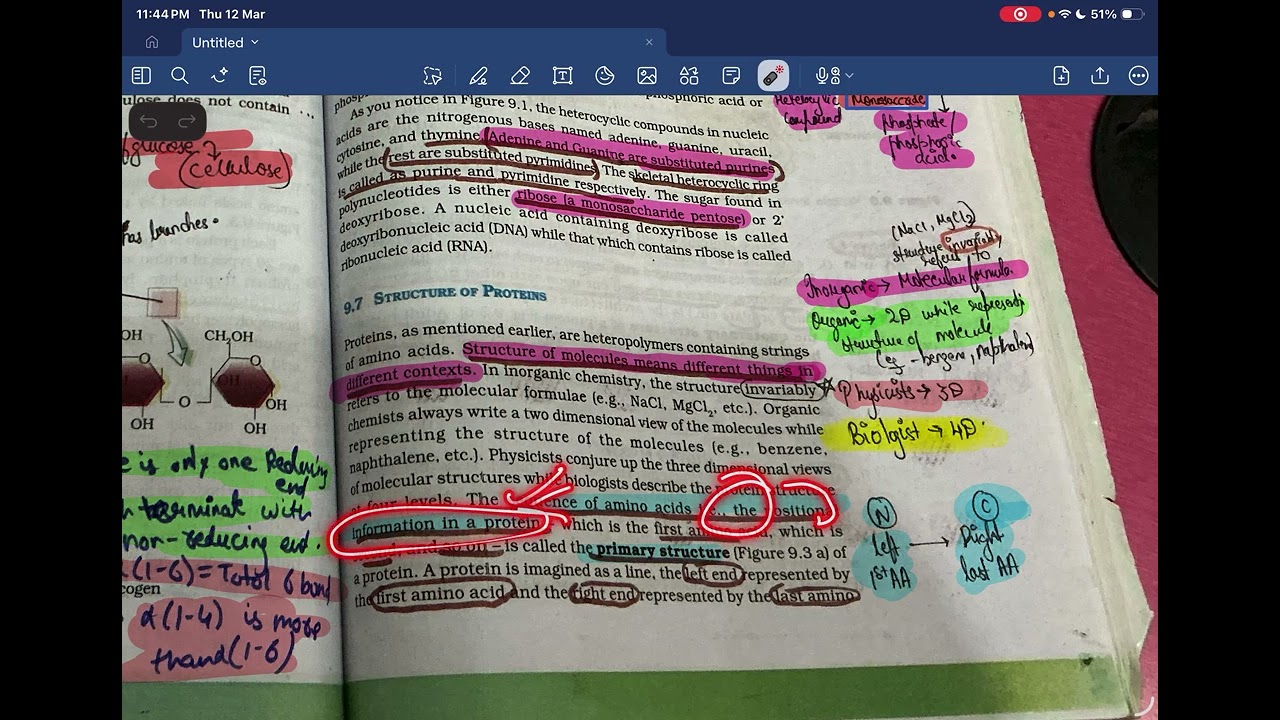 11:44 PM Thu 12 Mar
51%
Untitled
ulose does not contain ...
glucose
(Cellulose)
has branches.
OH
CH₂OH
O
O
OH
O
OH
OH
OH
e is only one Reducing
end
terminat with
non-reducing end.
(1-6) = Total 6 bond
ogen
α(1-4) is more
thand(1-6)
phosphoric acid or
As you notice in Figure 9.1, the heterocyclic compounds in nucleic
acids are the nitrogenous bases named adenine, guanine, uracil,
cytosine, and thymine. Adenine and Guanine are substituted purines
while the rest are substituted pyrimidines. The skeletal heterocyclic ring
is called as purine and pyrimidine respectively. The sugar found in
polynucleotides is either ribose (a monosaccharide pentose) or 2'
deoxyribose. A nucleic acid containing deoxyribose is called
deoxyribonucleic acid (DNA) while that which contains ribose is called
ribonucleic acid (RNA).
9.7 STRUCTURE OF PROTEINS
Proteins, as mentioned earlier, are heteropolymers containing strings
of amino acids. Structure of molecules means different things in
different contexts. In inorganic chemistry, the structure invariably
refers to the molecular formulae (e.g., NaCl, MgCl₂, etc.). Organic
chemists always write a two dimensional view of the molecules while
representing the structure of the molecules (e.g., benzene,
naphthalene, etc.). Physicists conjure up the three dimensional views
of molecular structures while biologists describe the protein structure
at four levels. The ence of amino acids the position
information in a protein which is the first amino acid, which is
and so on – is called the primary structure (Figure 9.3 a) of
a protein. A protein is imagined as a line, the left end represented by
the first amino acid and the right end represented by the last amino
Heterocyclic
Compound
Monosaccride
phosphate/
phosphoric
acid.
(NaCl, MgCl₂)
structure invariably
refers to
Inorganic → Molecular formula.
Organic → 2D while represent
structure of molecule
eg - benzene, napthalene
Physicists → 3D
Biologist → 4D.
N
left
1st AA
→
C
Right
last AA